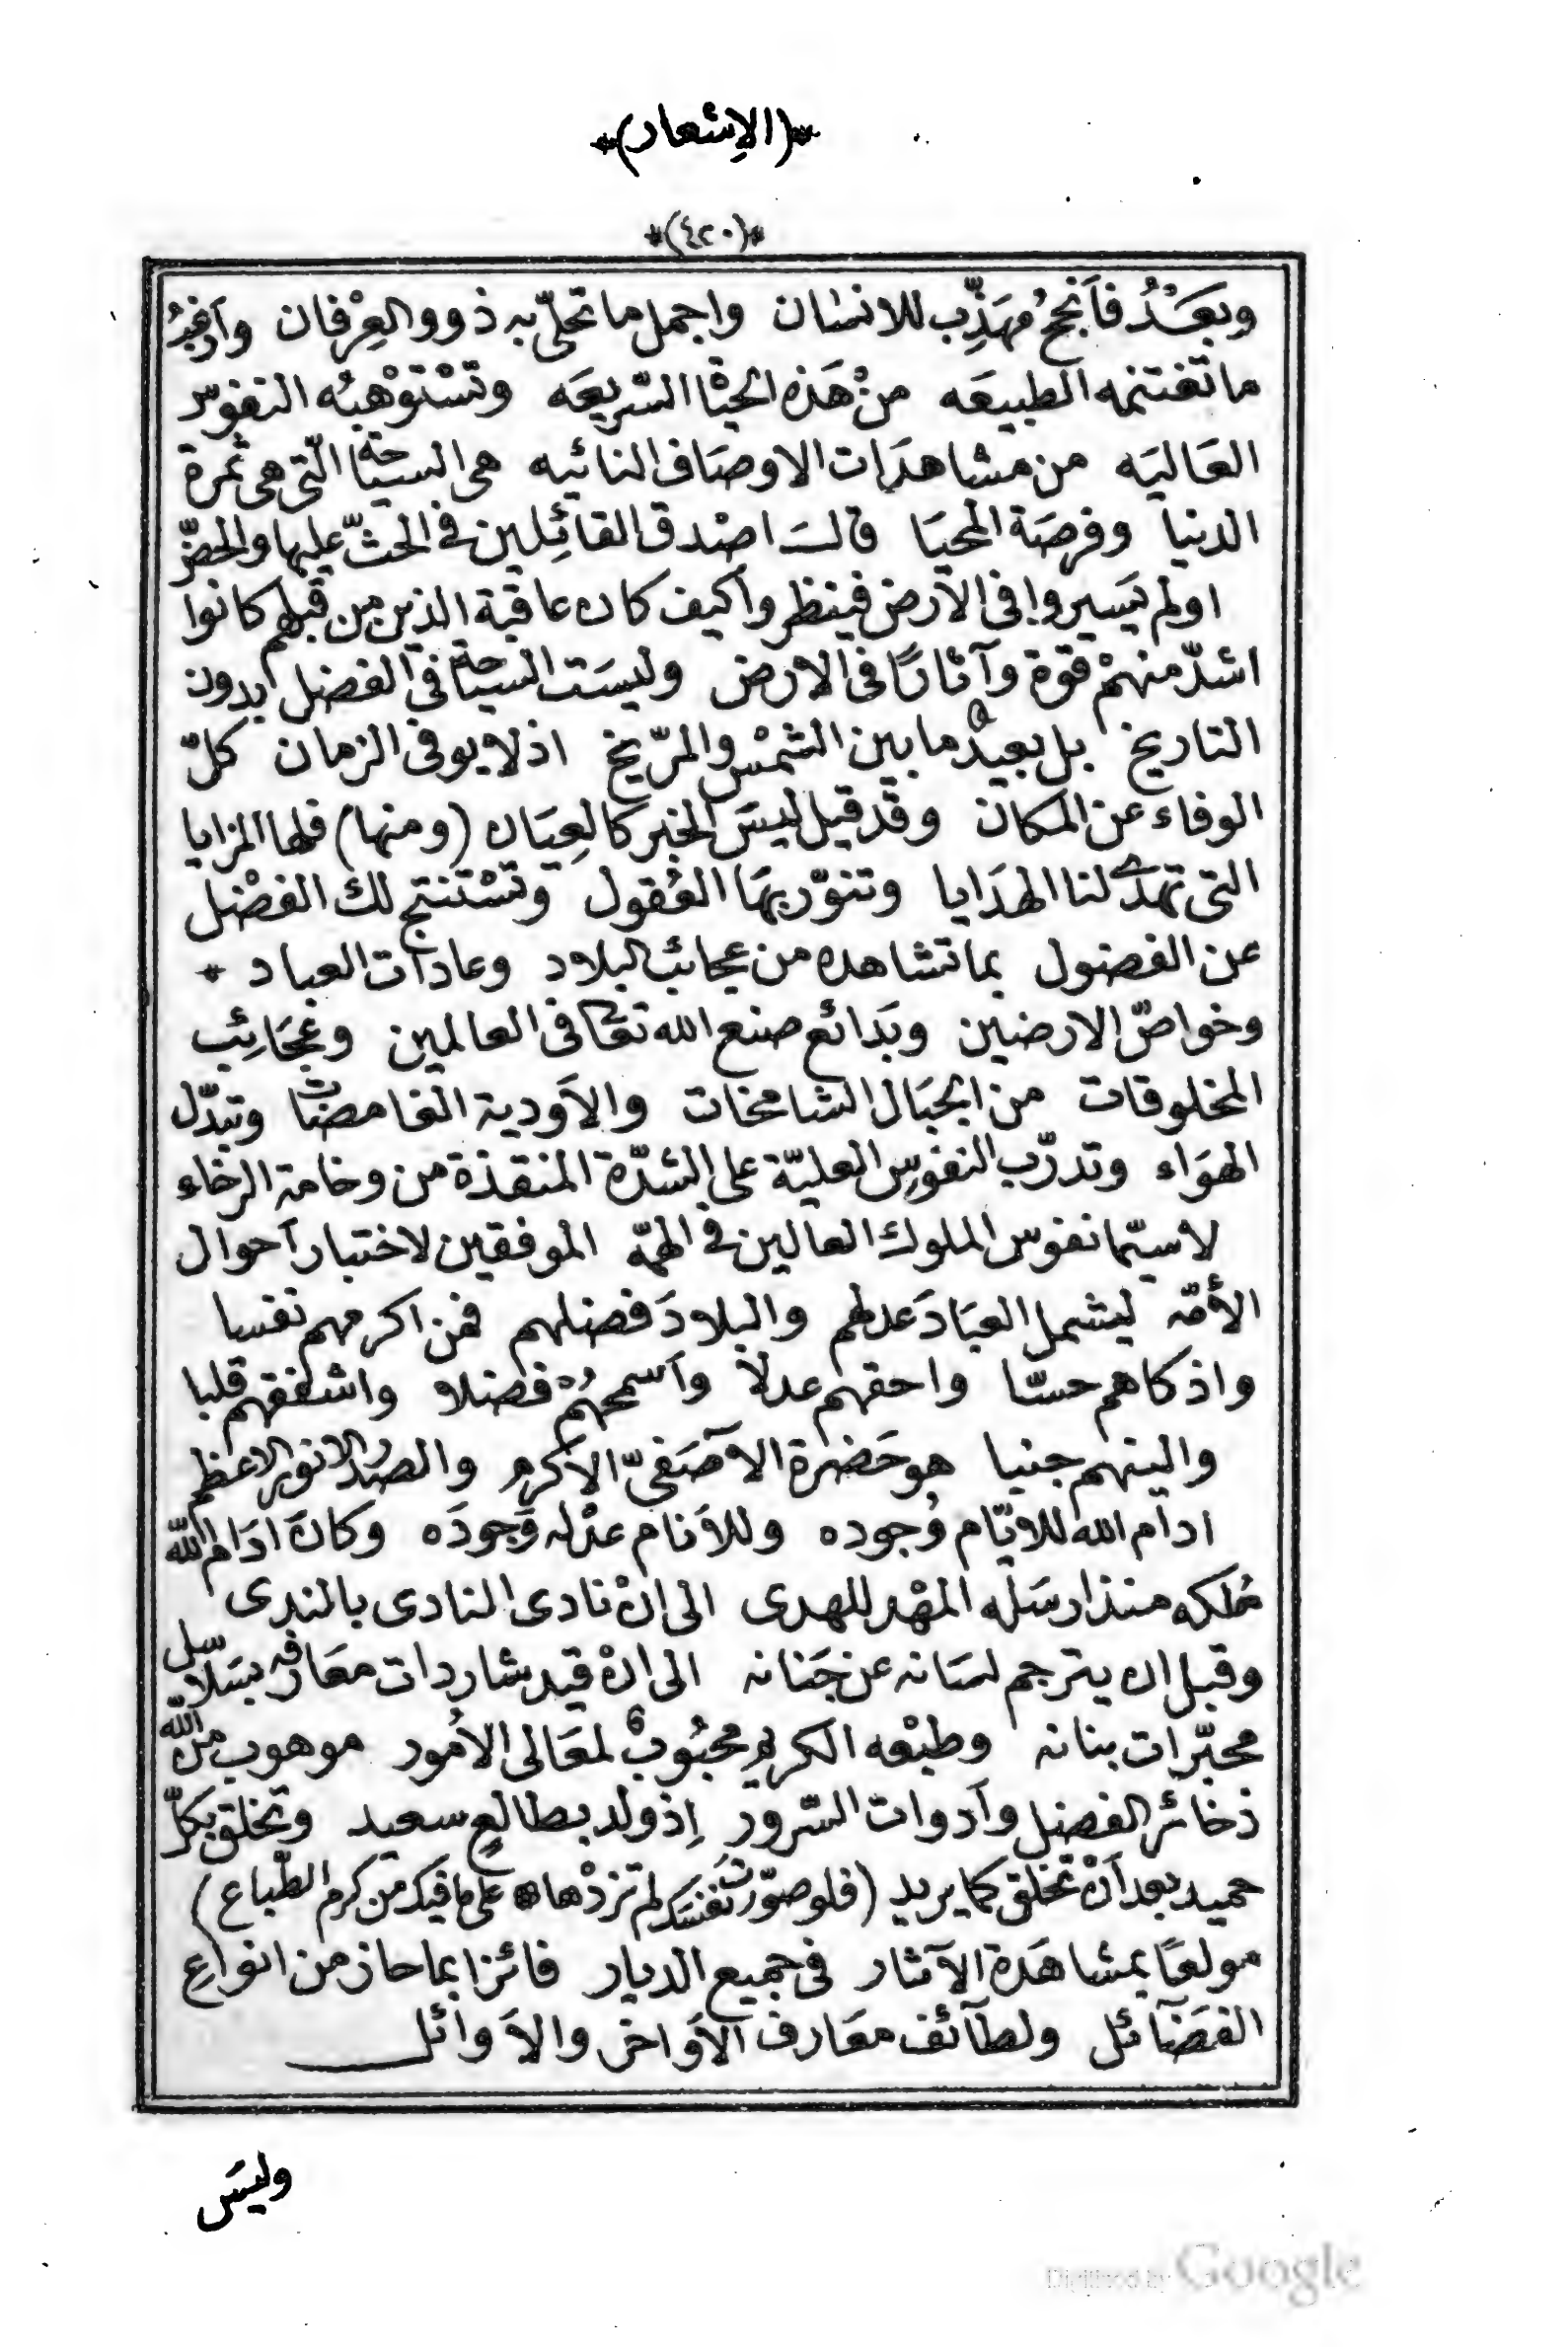 *(الإشعار)*
*(٤٢٠)*
وبعَدُ فأنجحُ مُهَذِّب للانسان واجمل ما تحلّى به ذوو العِرْفان
ما تغتنمه الطبيعَه منْ هَذه الحيٰا السّريعَه وتسْتوْهبُه النفوس
العَاليَه من مشاهدَات الاوصَاف النائيه هى السيٰاحة الّتى هى ثمرة
الدنيا وفرصَة المحيَا قالــَ اصْدق القائِلين فى الحثّ عليها والحضّ
اولم يَسيروا فى الأرض فينظروا كيف كان عاقبة الذين من قبلهم كانوا
اشدّ منهمْ قوة وآثارًا فى الارض وليسَت السياحة فى الفضل بدون
التاريخ بل بعيدٌ ما بين الشمْس والمرّيخ اذ لا يوفى الزمان كلّ
الوفاء عن المكان وقد قيل ليسَ الخبر كالعِيَان (ومنها) فلها المزايا
التى تهدى لنا الهدَايا وتنوّر بهَا العُقول وتسْتنتج لك الفضْل
عن الفضول بما تشاهده من عجائب البلاد وعادات العباد *
وخواصّ الارضين وبَدائع صنع الله تعالى فى العالمين وعجَائِب
المخلوقات من الجبَال الشامخات والأودية الغامضات وتبدّل
الهوَاء وتدرّب النفوس العليّة على الشدّة المنقذة من وخامة الرخاء
لاسيّما نفوس الملوك العالين فى الهمّه الموفقين لاختبار أحوال
الأمّه ليشمل العبَادَ عدلهم والبلادَ فضلهم فمن اكرمهم نفسا
واذكاهم حسّا واحقهم عدلاً وأسمحهُمْ فضلا واشفقهم قلبا
والينهم جنبا هو حَضرة الآصَفىّ الأكرم والصدر الانور الاعظم
ادام الله للايّام وُجوده وللأنام عدْله وَجودَه وكانَ ادَام الله
مُلكه منذ ارسَله المهْد للهدى الى انْ نادى النادى بالندى
وقبل ان يترجم لسَانه عن جَنانه الى انْ قيد شاردات معَارفه بسَلاسل
محبّرات بنانه وطبْعه الكريم محبُوبٌ لمعَالى الاُمور موهوب من الله
ذخائر الفضل وأدوات السّرور إذ ولد بطالعٍ سعيد وتخلق بكلّ
حميد بعد أنْ تخلق كما يريد (فلو صوّرت نفسَك لم تزدْها * على ما فيك من كرم الطّباع)
مولعًا بمشاهَدة الآثار فى جميع الديار فائزا بما حاز من انواعِ
الفضَآئل ولطآئف معَارف الأواخر والأوائل
وليسَ
Digitized by Google